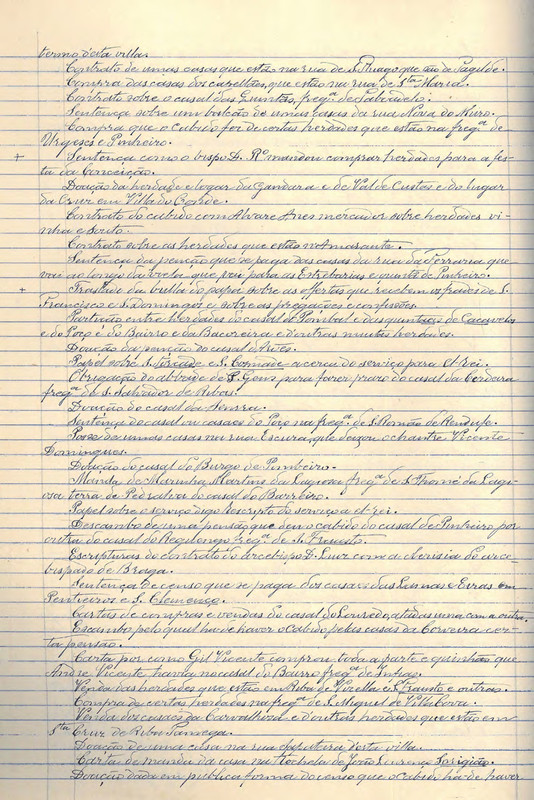 termo d'esta villa.
Contrato de umas casas que estão na rua de S. Thiago que são de Fagilde.
Compra das casas dos capellães, que estão na rua de Sta Maria.
Contrato sobre o casal das Quintãs, fregª de Sobradelo.
Sentença sobre um balcão de umas casas da rua Nova do Muro.
Compra que o Cabido fez de certas herdades que estão na fregª de
Urgeses e Pinheiro.
+ Sentença como o bispo D. Rº mandou comprar herdades para a fes-
ta da Conceição.
Doação da herdade e logar da Gandara e de Val de Custas e do lugar
da Cruz em Villa do Conde.
Contrato do cabido com Alvare Anes mercador sobre herdades vi-
nha e souto.
Contrato sobre as herdades que estão no Amarante.
Sentença da penção que se paga das casas da rua da Ferraria que
vai ao longo da que vai para as Estrebarias e quinta de Pinheiro.
+ Traslado da bulla do papa sobre as offertas que recebem os frades de S.
Francisco e S. Domingos e sobre as pregações e confissões.
Partição entre herdades do casal do Pombal e das quintãs de Cacavelos
e do Poço e do Bairro e da Bacoreira e d'outras muitas herdades.
Doação da penção do casal d'Aves.
Papel sobre S. Torcade e S. Comade acerca do serviço para el-rei.
Obrigação do abbade de S. Gens para fazer prazo do casal da Cerdeira
fregª de S. Salvador de Ribas.
Doação do casal da Senra.
Sentença do casal ou casaes do Poço na fregª de S. Romão de Rendufe.
Posse de umas casas na rua Escura, que deixou o chantre Vicente
Domingues.
Doação do casal do Burgo de Pombeiro.
Manda de Marinha Martins da Lagoosa fregª de S. Thomé da Lagi-
osa terra de Pedralva do casal do Barreiro.
Papel sobre o serviço digo Rescripto do serviço a el-rei.
Descambo de uma pensão que deu o cabido do casal de Pinheiro por
outra do casal do Regelongo fregª de S. Fausto.
Escripturas do contrato do arcebispo D. Luiz com a cleresia do arce-
bispado de Braga.
Sentença de censo que se paga dos casaes das Lamas e Eiras em
Penteeiros e S. Clemenço.
Cartas de compras e vendas do casal do Louredo, atadas uma com a outra.
Escambo pelo qual ha de haver o Cabido pelas casas da Corveira cer-
ta pensão.
Carta por como Gil Vicente comprou toda a parte e quinhão que
André Vicente havia no casal do Bairro fregª de Infias.
Venda das herdades que estão em Riba de Vizella e S. Frausto e outras.
Compra de certas herdades na fregª de S. Miguel de Villa Cova.
Venda dos casaes da Carvalhosa e d'outras herdades que estão em
Sta Cruz de Riba Tamega.
Doação de uma casa na rua Sapateira desta villa.
Carta de manda da casa na Rochela de João Lourenço
Doação dada em publica forma do censo que o Cabido ha de haver